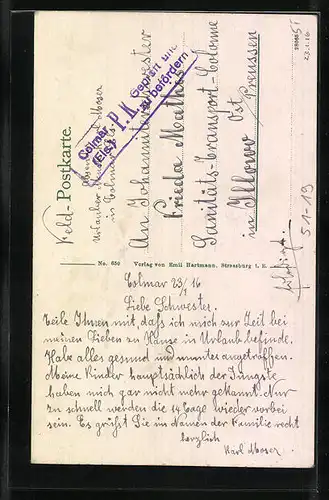 Feld-Postkarte.
Urlauber
in Colmar
An Johanniterschwester
Frieda Mathis
Sanitäts-Transport-Colonne
in Illowo Ost
Preussen
Colmar P.K.
(Els.)
Geprüft und
zu befördern
23.1.16
51-19
No. 650 Verlag von Emil Hartmann, Strassburg i. E.
Colmar 23/1 16
Liebe Schwester.
Teile Ihnen mit, daß ich mich zur Zeit bei
meinen Lieben zu Hause in Urlaub befinde.
Habe alles gesund und munter angetroffen.
Meine Kinder hauptsächlich der Jüngste
haben mich gar nicht mehr gekannt. Nur
zu schnell werden die 14 Tage wieder vorbei
sein. Es grüßt Sie im Namen der Familie recht
herzlich
Karl Moser